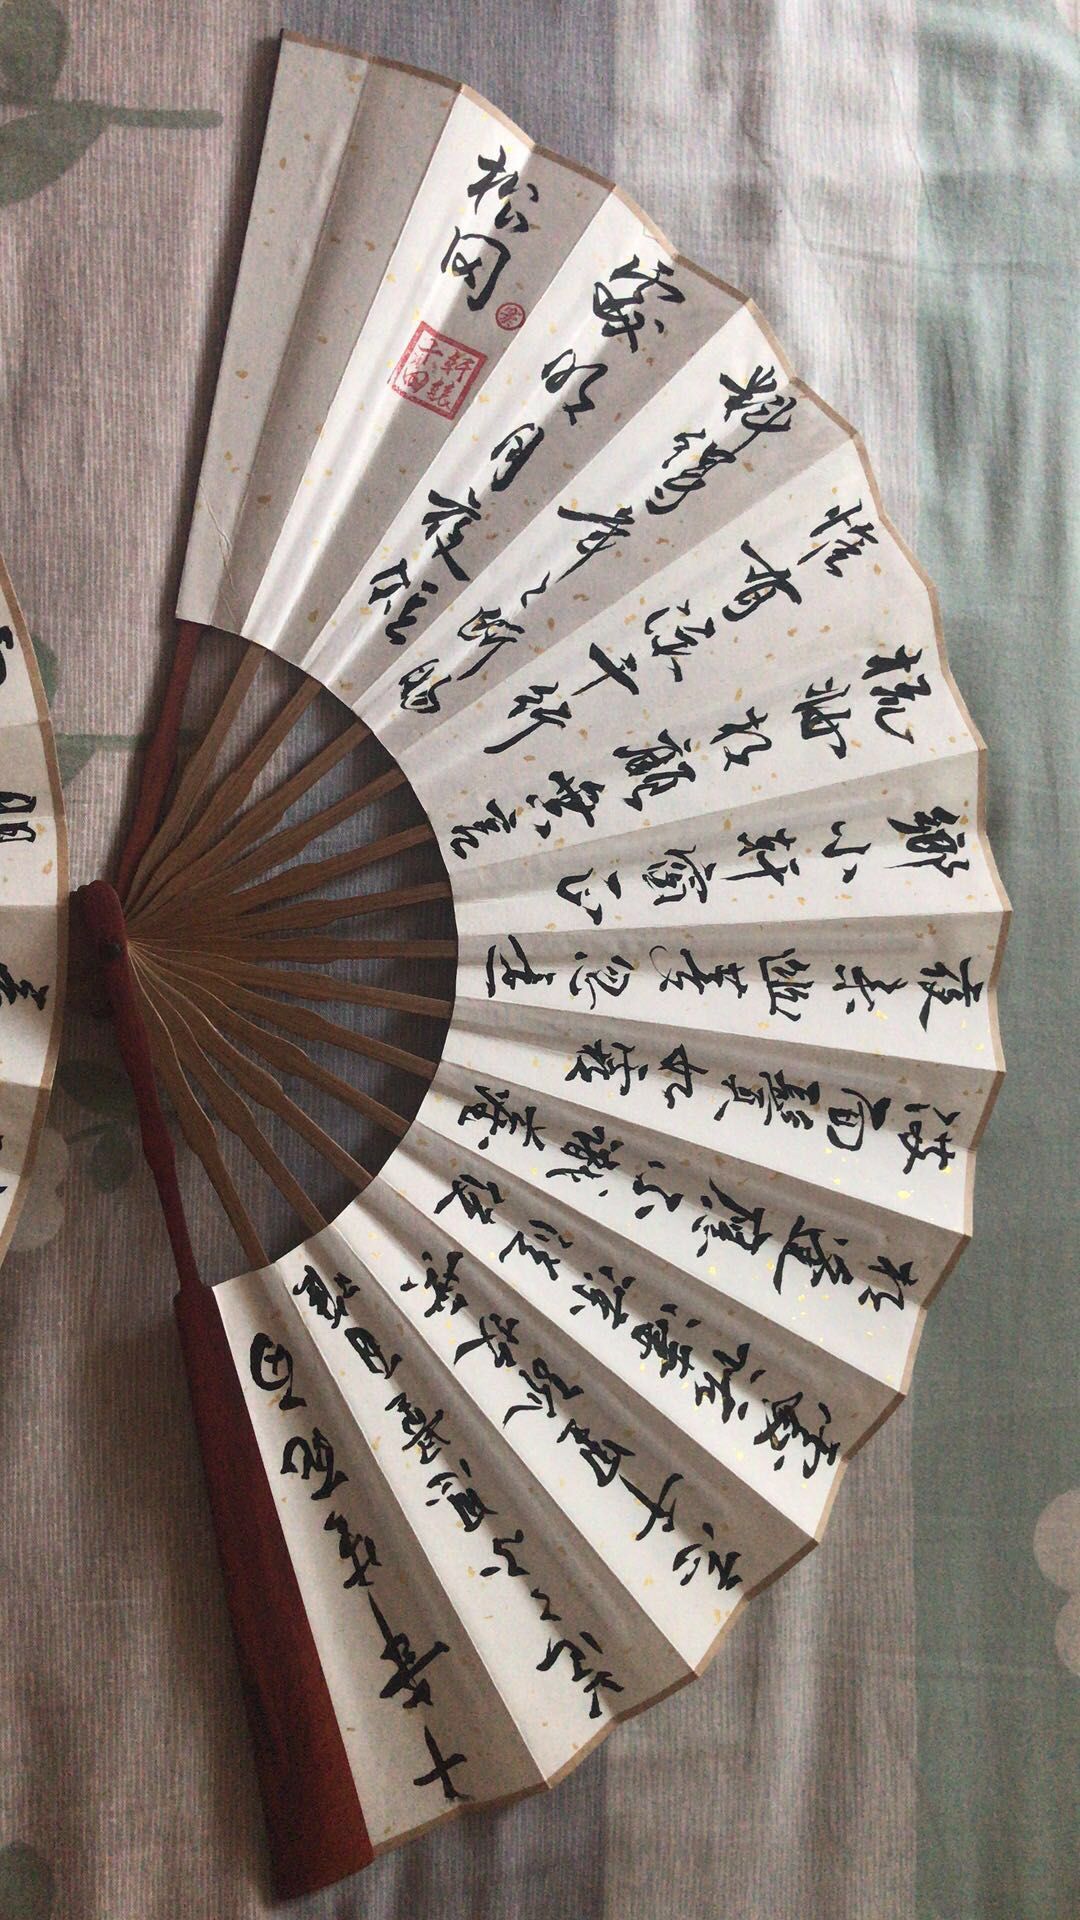 十年生死兩
茫々不思量自難
忘千里孤墳無
處話淒涼縱使
相逢應不識塵
滿面鬢如霜
夜來幽夢忽還
鄉小軒窗正
梳妝相顧無言
惟有淚千行
料得年々斷腸
處明月夜短
松岡
軒轅
十四
月